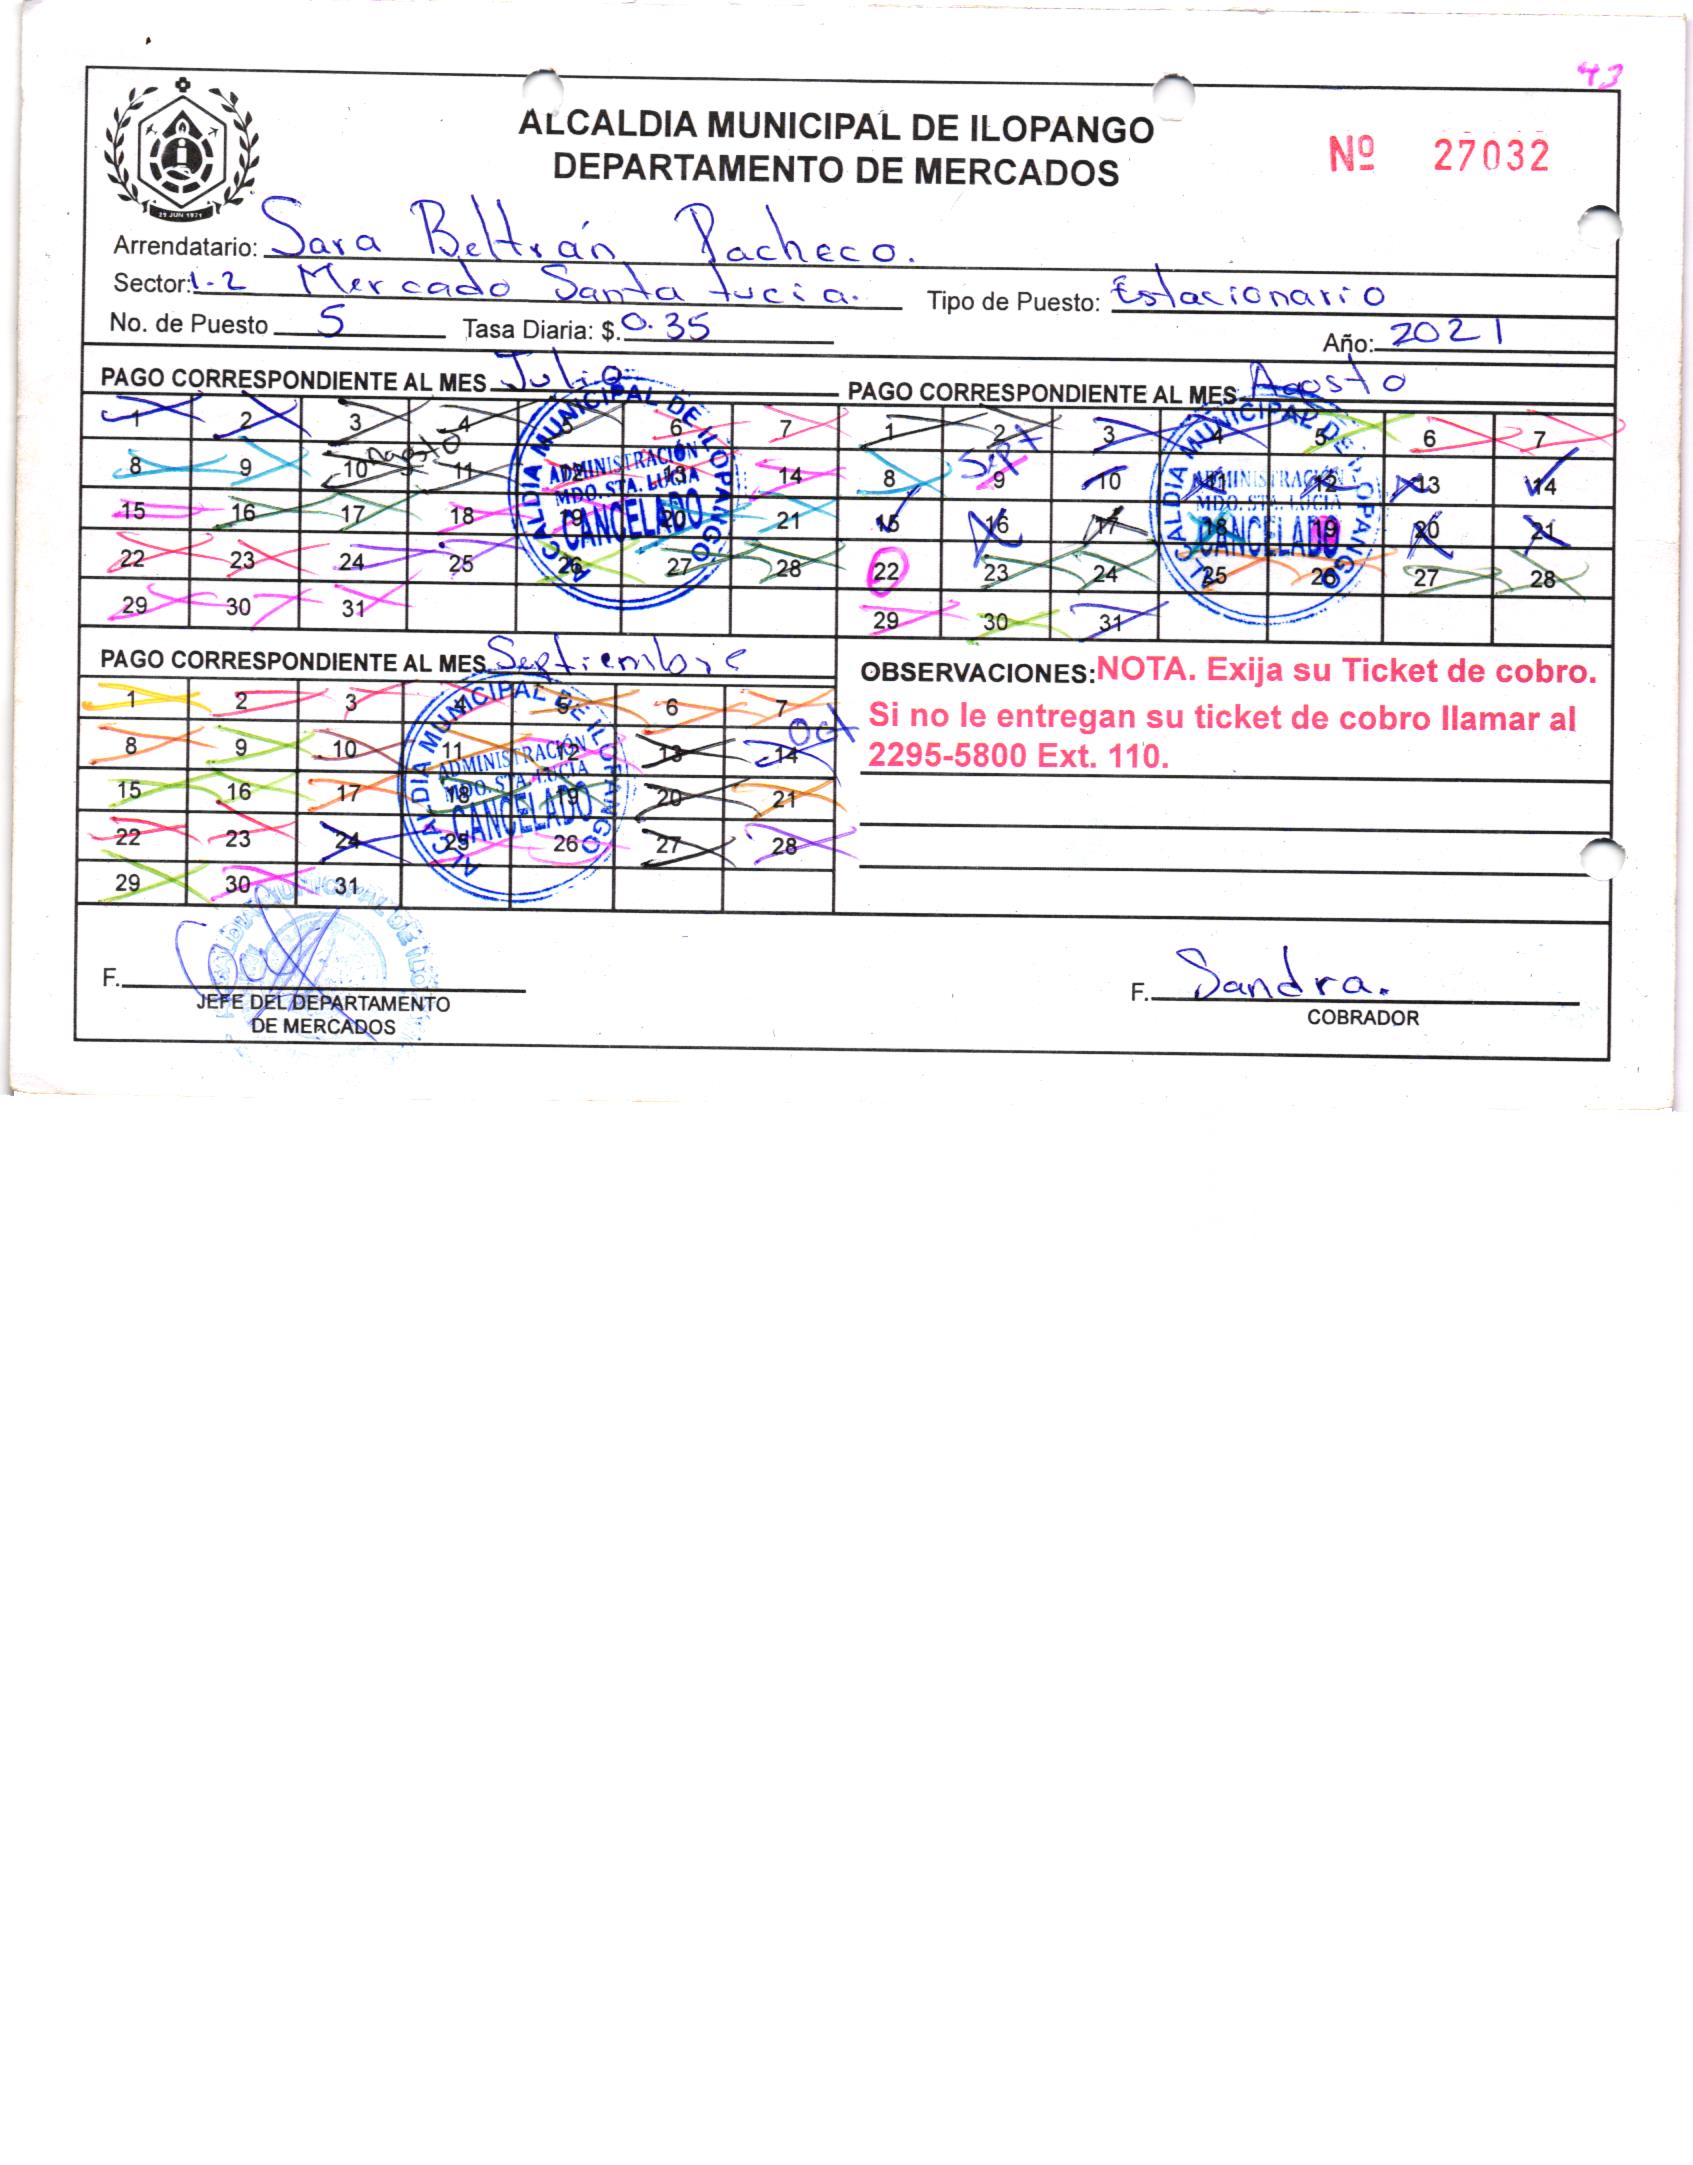 43
ALCALDIA MUNICIPAL DE ILOPANGO
DEPARTAMENTO DE MERCADOS
Nº 27032
29 JUN 1971
Arrendatario: Sara Beltrán Pacheco.
Sector: 1-2 Mercado Santa Lucia. Tipo de Puesto: Estacionario
No. de Puesto 5 Tasa Diaria: $. 0.35 Año: 2021
PAGO CORRESPONDIENTE AL MES Julio
1 2 3 4 5 6 7
Agosto
8 9 10 11 12 13 14
15 16 17 18 19 20 21
22 23 24 25 26 27 28
29 30 31
ALCALDIA MUNICIPAL DE ILOPANGO
ADMINISTRACIÓN
MDO. STA. LUCIA
CANCELADO
PAGO CORRESPONDIENTE AL MES Agosto
1 2 3 4 5 6 7
Sept
8 9 10 11 12 13 14
15 16 17 18 19 20 21
22 23 24 25 26 27 28
29 30 31
ALCALDIA MUNICIPAL DE ILOPANGO
ADMINISTRACIÓN
MDO. STA. LUCIA
CANCELADO
PAGO CORRESPONDIENTE AL MES Septiembre
1 2 3 4 5 6 7
Oct
8 9 10 11 12 13 14
15 16 17 18 19 20 21
22 23 24 25 26 27 28
29 30 31
ALCALDIA MUNICIPAL DE ILOPANGO
ADMINISTRACIÓN
MDO. STA. LUCIA
CANCELADO
OBSERVACIONES: NOTA. Exija su Ticket de cobro.
Si no le entregan su ticket de cobro llamar al
2295-5800 Ext. 110.
F.
JEFE DEL DEPARTAMENTO
DE MERCADOS
F. Sandra.
COBRADOR